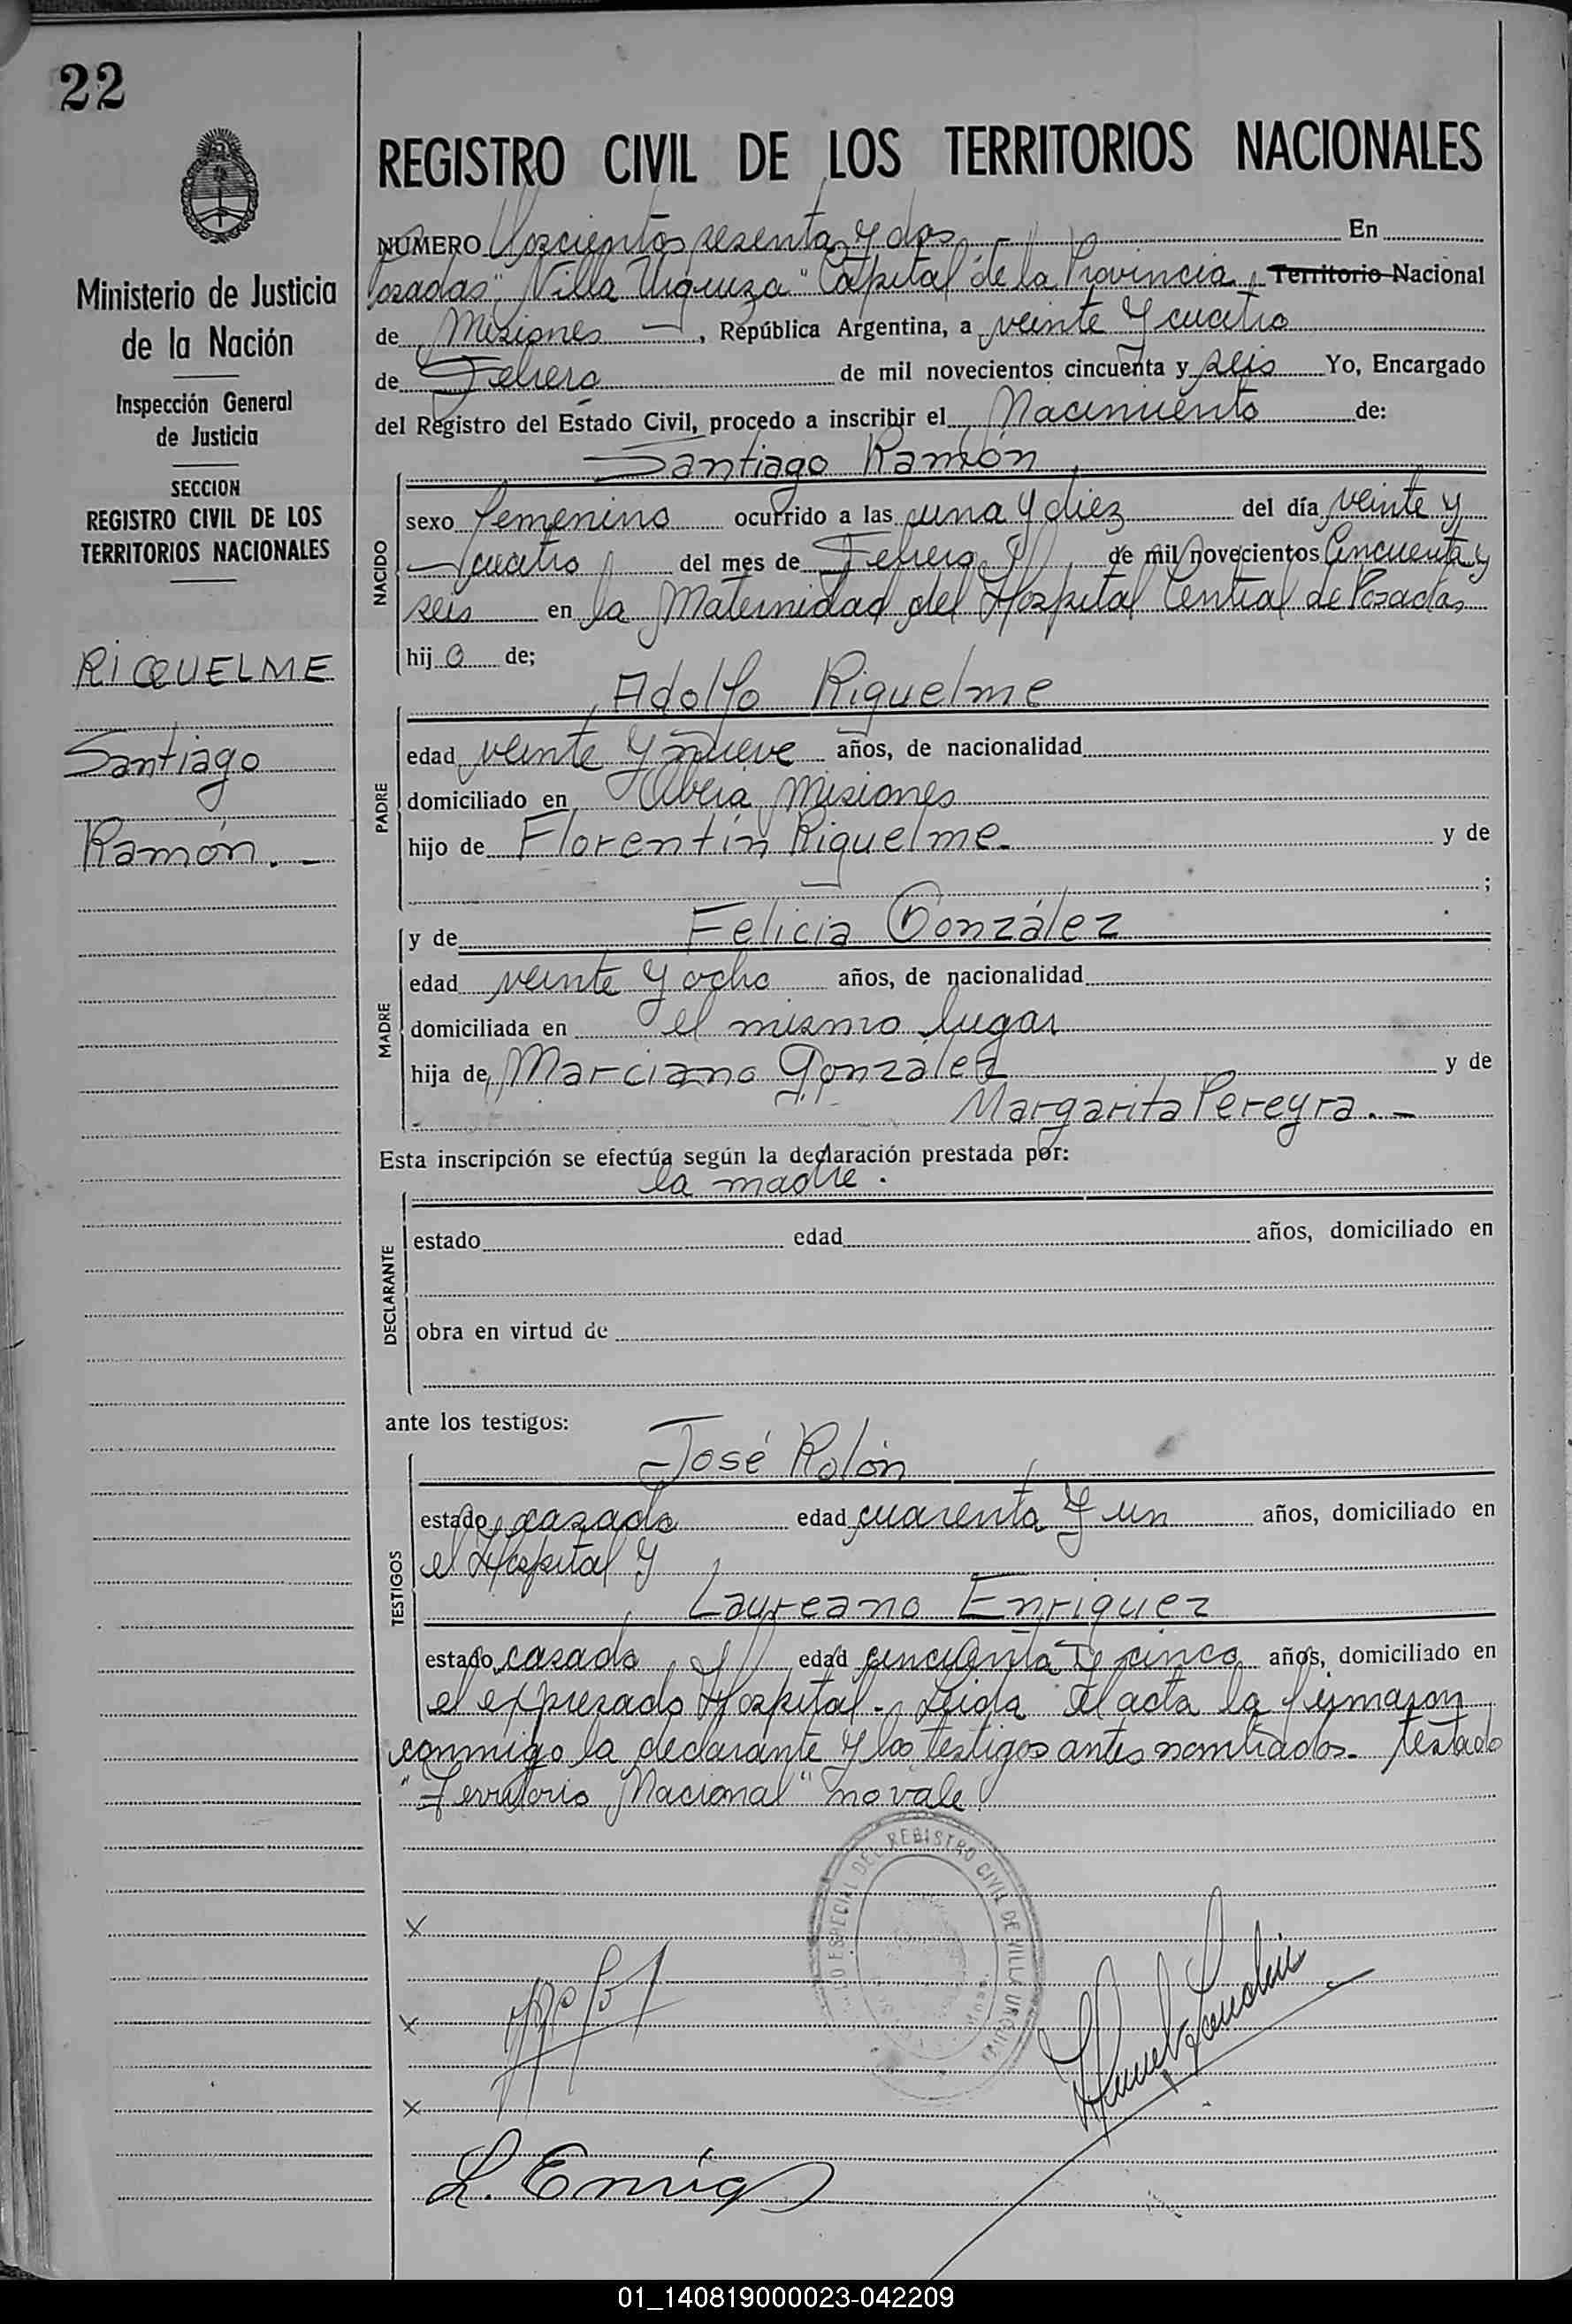 22
REGISTRO CIVIL DE LOS TERRITORIOS NACIONALES
Ministerio de Justicia
de la Nación
Inspección General
de Justicia
SECCION
REGISTRO CIVIL DE LOS
TERRITORIOS NACIONALES
RIQUELME
Santiago
Ramón. -
NUMERO Doscientos sesenta y dos - En
Posadas "Villa Urquiza" Capital de la Provincia Territorio Nacional
de Misiones -, República Argentina, a veinte y cuatro
de Febrero de mil novecientos cincuenta y seis Yo, Encargado
del Registro del Estado Civil, procedo a inscribir el Nacimiento de:
Santiago Ramón
NACIDO
sexo femenino ocurrido a las una y diez del día veinte y
cuatro del mes de Febrero de mil novecientos cincuenta y
seis en la Maternidad del Hospital Central de Posadas
hij o de;
Adolfo Riquelme
PADRE
edad veinte y nueve años, de nacionalidad
domiciliado en Oberá Misiones
hijo de Florentín Riquelme. y de
;
y de Felicia González
MADRE
edad veinte y ocho años, de nacionalidad
domiciliada en el mismo lugar
hija de Marciano González y de
Margarita Pereyra. -
Esta inscripción se efectúa según la declaración prestada por:
la madre.
DECLARANTE
estado edad años, domiciliado en
obra en virtud de
ante los testigos:
José Rolón
TESTIGOS
estado casado edad cuarenta y un años, domiciliado en
el Hospital y
Laureano Enriquez
estado casado edad cincuenta y cinco años, domiciliado en
el expresado Hospital. Leida el acta la firmaron
conmigo la declarante y los testigos antes nombrados. testado
"Territorio Nacional" no vale
DEL REGISTRO CIVIL DE VILLA URQUIZA
ESPECIAL
x
x
x
L. Enriq
01_140819000023-042209